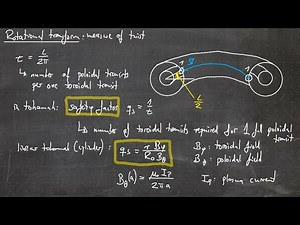 Rotational transform: measure of twist
τ = ι/2π
↳ number of poloidal transits
per one toroidal transit
1
1
ι/2
in tokamak: safety factor q_s = 1/τ
↳ number of toroidal transits required for 1 full poloidal transit
linear tokamak (cylinder): q_s = r B_φ / R_0 B_θ
B_φ: toroidal field
B_θ: poloidal field
B_θ(a) = μ_0 I_P / 2πa
I_P: plasma current